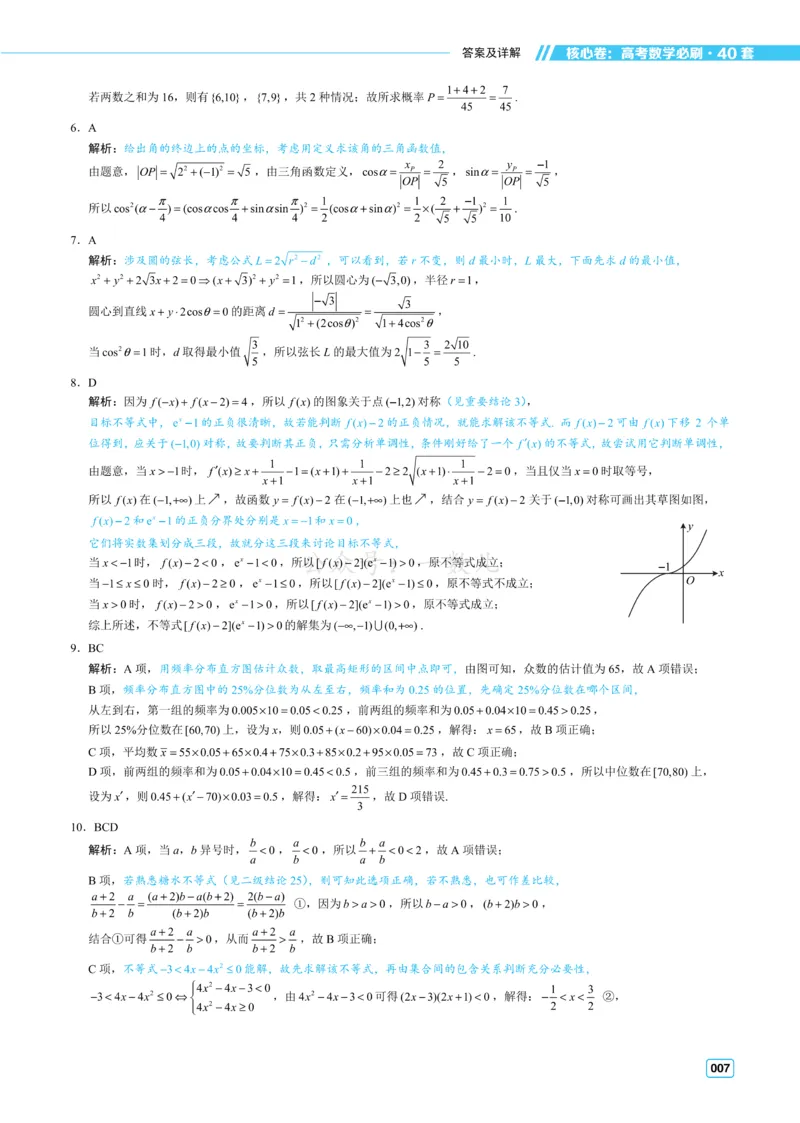 答案及详解 核心卷:高考数学必刷·40套
若两数之和为16,则有{6,10},{7,9},共2种情况;故所求概率P=(1+4+2)/45=7/45.
6. A
解析:给出角的终边上的点的坐标,考虑用定义求该角的三角函数值,
由题意,|OP|=√(2²+(−1)²)=√5,由三角函数定义,cosα=x_P/|OP|=2/√5,sinα=y_P/|OP|=−1/√5,
所以cos²(α−π/4)=(cosαcosπ/4+sinαsinπ/4)²=1/2(cosα+sinα)²=1/2×(2/√5+−1/√5)²=1/10.
7. A
解析:涉及圆的弦长,考虑公式L=2√(r²−d²),可以看到,若r不变,则d最小时,L最大,下面先求d的最小值,
x²+y²+2√3x+2=0⇒(x+√3)²+y²=1,所以圆心为(−√3,0),半径r=1,
圆心到直线x+y·2cosθ=0的距离d=|−√3|/√(1²+(2cosθ)²)=√3/√(1+4cos²θ),
当cos²θ=1时,d取得最小值√(3/5),所以弦长L的最大值为2√(1−3/5)=2√10/5.
8. D
解析:因为f(−x)+f(x−2)=4,所以f(x)的图象关于点(−1,2)对称(见重要结论3),
目标不等式中,eˣ−1的正负很清晰,故若能判断f(x)−2的正负情况,就能求解该不等式. 而f(x)−2可由f(x)下移 2 个单
位得到,应关于(−1,0)对称,故要判断其正负,只需分析单调性,条件刚好给了一个f′(x)的不等式,故尝试用它判断单调性,
由题意,当x>−1时,f′(x)≥x+1/(x+1)−1=(x+1)+1/(x+1)−2≥2√((x+1)·1/(x+1))−2=0,当且仅当x=0时取等号,
所以f(x)在(−1,+∞)上↗,故函数y=f(x)−2在(−1,+∞)上也↗,结合y=f(x)−2关于(−1,0)对称可画出其草图如图,
f(x)−2和eˣ−1的正负分界处分别是x=−1和x=0,
它们将实数集划分成三段,故就分这三段来讨论目标不等式,
当x<−1时,f(x)−2<0,eˣ−1<0,所以[f(x)−2](eˣ−1)>0,原不等式成立;
当−1≤x≤0时,f(x)−2≥0,eˣ−1≤0,所以[f(x)−2](eˣ−1)≤0,原不等式不成立;
当x>0时,f(x)−2>0,eˣ−1>0,所以[f(x)−2](eˣ−1)>0,原不等式成立;
综上所述,不等式[f(x)−2](eˣ−1)>0的解集为(−∞,−1)∪(0,+∞).
y
−1
O
x
9. BC
解析:A项,用频率分布直方图估计众数,取最高矩形的区间中点即可,由图可知,众数的估计值为65,故A项错误;
B项,频率分布直方图中的25%分位数为从左至右,频率和为0.25的位置,先确定25%分位数在哪个区间,
从左到右,第一组的频率为0.005×10=0.05<0.25,前两组的频率和为0.05+0.04×10=0.45>0.25,
所以25%分位数在[60,70)上,设为x,则0.05+(x−60)×0.04=0.25,解得:x=65,故B项正确;
C项,平均数x̄=55×0.05+65×0.4+75×0.3+85×0.2+95×0.05=73,故C项正确;
D项,前两组的频率和为0.05+0.04×10=0.45<0.5,前三组的频率和为0.45+0.3=0.75>0.5,所以中位数在[70,80)上,
设为x′,则0.45+(x′−70)×0.03=0.5,解得:x′=215/3,故D项错误.
10. BCD
解析:A项,当a,b异号时,b/a<0,a/b<0,所以b/a+a/b<0<2,故A项错误;
B项,若熟悉糖水不等式(见二级结论25),则可知此选项正确,若不熟悉,也可作差比较,
(a+2)/(b+2)−a/b=((a+2)b−a(b+2))/((b+2)b)=2(b−a)/((b+2)b) ①,因为b>a>0,所以b−a>0,(b+2)b>0,
结合①可得(a+2)/(b+2)−a/b>0,从而(a+2)/(b+2)>a/b,故B项正确;
C项,不等式−3<4x−4x²≤0能解,故先求解该不等式,再由集合间的包含关系判断充分必要性,
−3<4x−4x²≤0⇔{4x²−4x−3<0 4x²−4x≥0,由4x²−4x−3<0可得(2x−3)(2x+1)<0,解得:−1/2<x<3/2 ②,
007